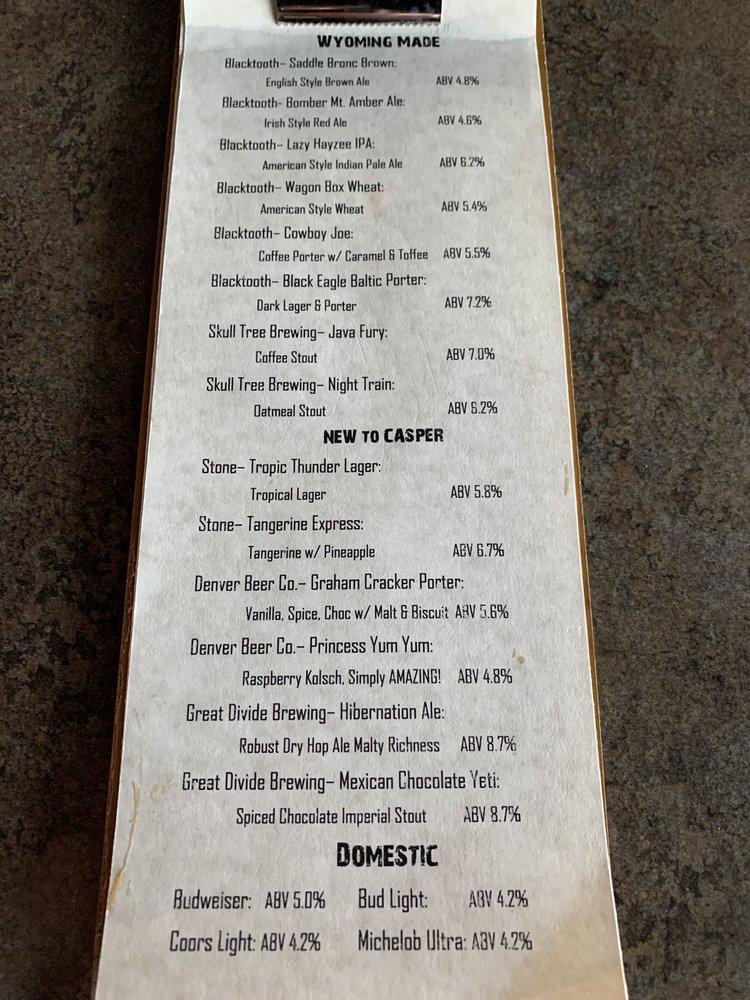 WYOMING MADE
Blacktooth– Saddle Bronc Brown:
English Style Brown Ale ABV 4.8%
Blacktooth- Bomber Mt. Amber Ale:
Irish Style Red Ale ABV 4.6%
Blacktooth– Lazy Hayzee IPA:
American Style Indian Pale Ale ABV 6.2%
Blacktooth– Wagon Box Wheat:
American Style Wheat ABV 5.4%
Blacktooth– Cowboy Joe:
Coffee Porter w/ Caramel & Toffee ABV 5.5%
Blacktooth– Black Eagle Baltic Porter:
Dark Lager & Porter ABV 7.2%
Skull Tree Brewing– Java Fury:
Coffee Stout ABV 7.0%
Skull Tree Brewing– Night Train:
Oatmeal Stout ABV 6.2%
NEW TO CASPER
Stone– Tropic Thunder Lager:
Tropical Lager ABV 5.8%
Stone– Tangerine Express:
Tangerine w/ Pineapple ABV 6.7%
Denver Beer Co.– Graham Cracker Porter:
Vanilla, Spice, Choc w/ Malt & Biscuit ABV 5.6%
Denver Beer Co.– Princess Yum Yum:
Raspberry Kolsch, Simply AMAZING! ABV 4.8%
Great Divide Brewing– Hibernation Ale:
Robust Dry Hop Ale Malty Richness ABV 8.7%
Great Divide Brewing– Mexican Chocolate Yeti:
Spiced Chocolate Imperial Stout ABV 8.7%
DOMESTIC
Budweiser: ABV 5.0% Bud Light: ABV 4.2%
Coors Light: ABV 4.2% Michelob Ultra: ABV 4.2%